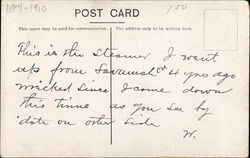 1894-1910
100
POST CARD
This space may be used for communication. The address only to be written here.
This is the Steamer I went
up from Savannah 4 yrs ago
wrecked since I come down
this time as you see by
date on other side
W.